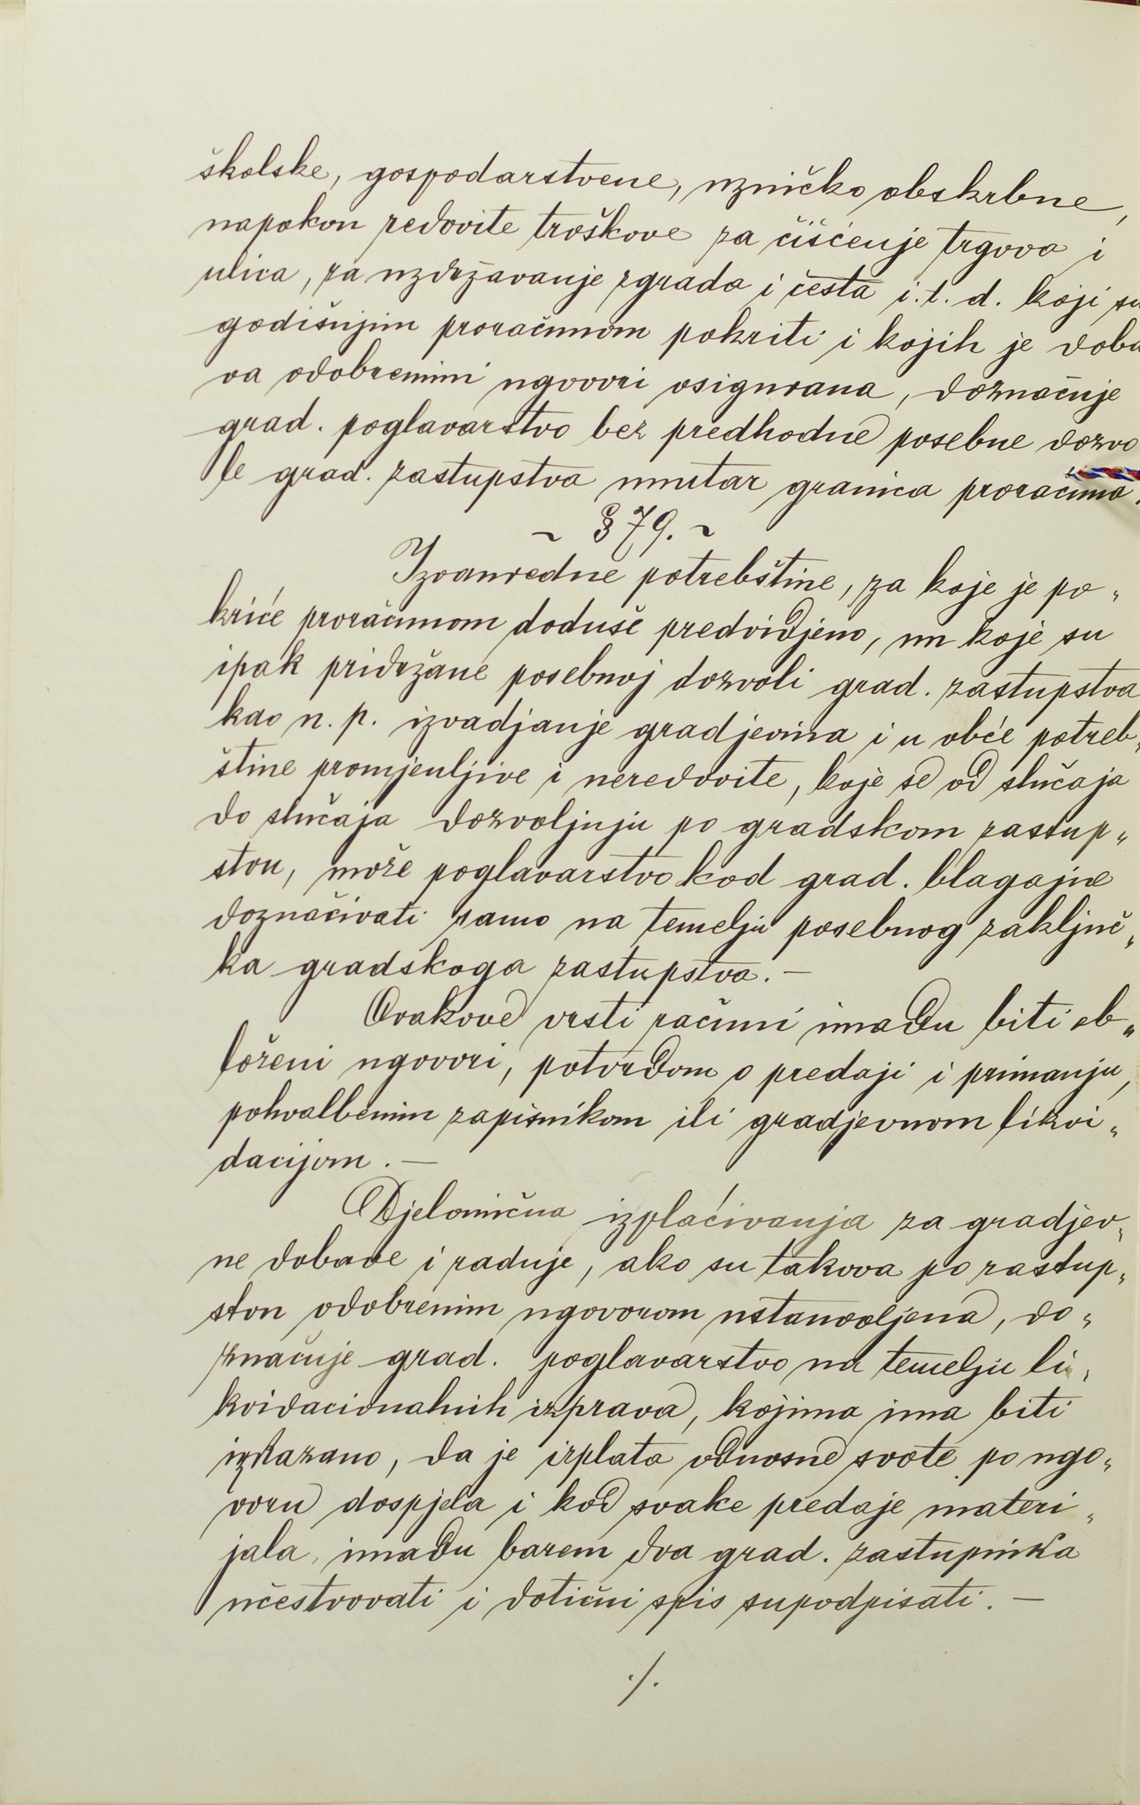 školske, gospodarstvene, uzničko obskrbne,
napokon redovite troškove za čišćenje trgova i
ulica, za uzdržavanje zgrada i česta i.t.d. koji su
godišnjim proračunom pokriti i kojih je doba
va odobrenimi ugovori osigurana, doznačuje
grad. poglavarstvo bez predhodne posebne dozvo
le grad. zastupstva unutar granica proračuna.
~ § 79. ~
Izvanredne potrebštine, za koje je po„
kriće proračunom doduše predvidjeno, nu koje su
ipak pridržane posebnoj dozvoli grad. zastupstva
kao n. p. izvadjanje gradjevina i u obće potreb„
štine promjenljive i neredovite, koje se od slučaja
do slučaja dozvoljuju po gradskom zastup„
stvu, može poglavarstvo kod grad. blagajne
doznačivati samo na temelju posebnog zaključ„
ka gradskoga zastupstva. —
Ovakove vrsti računi imadu biti ob„
loženi ugovori, potvrdom o predaji i primanju,
pohvalbenim zapisnikom ili gradjevnom likvi„
dacijom. —
Djelomična izplaćivanja za gradjev„
ne dobave i radnje, ako su takova po zastup„
stvu odobrenim ugovorom ustanovljena, do„
značuje grad. poglavarstvo na temelju li„
kvidacionalnih izprava, kojima ima biti
izkazano, da je izplata odnosne svote po ugo„
voru dospjela i kod svake predaje materi„
jala, imadu barem dva grad. zastupnika
učestvovati i dotični spis supodpisati. —
./.